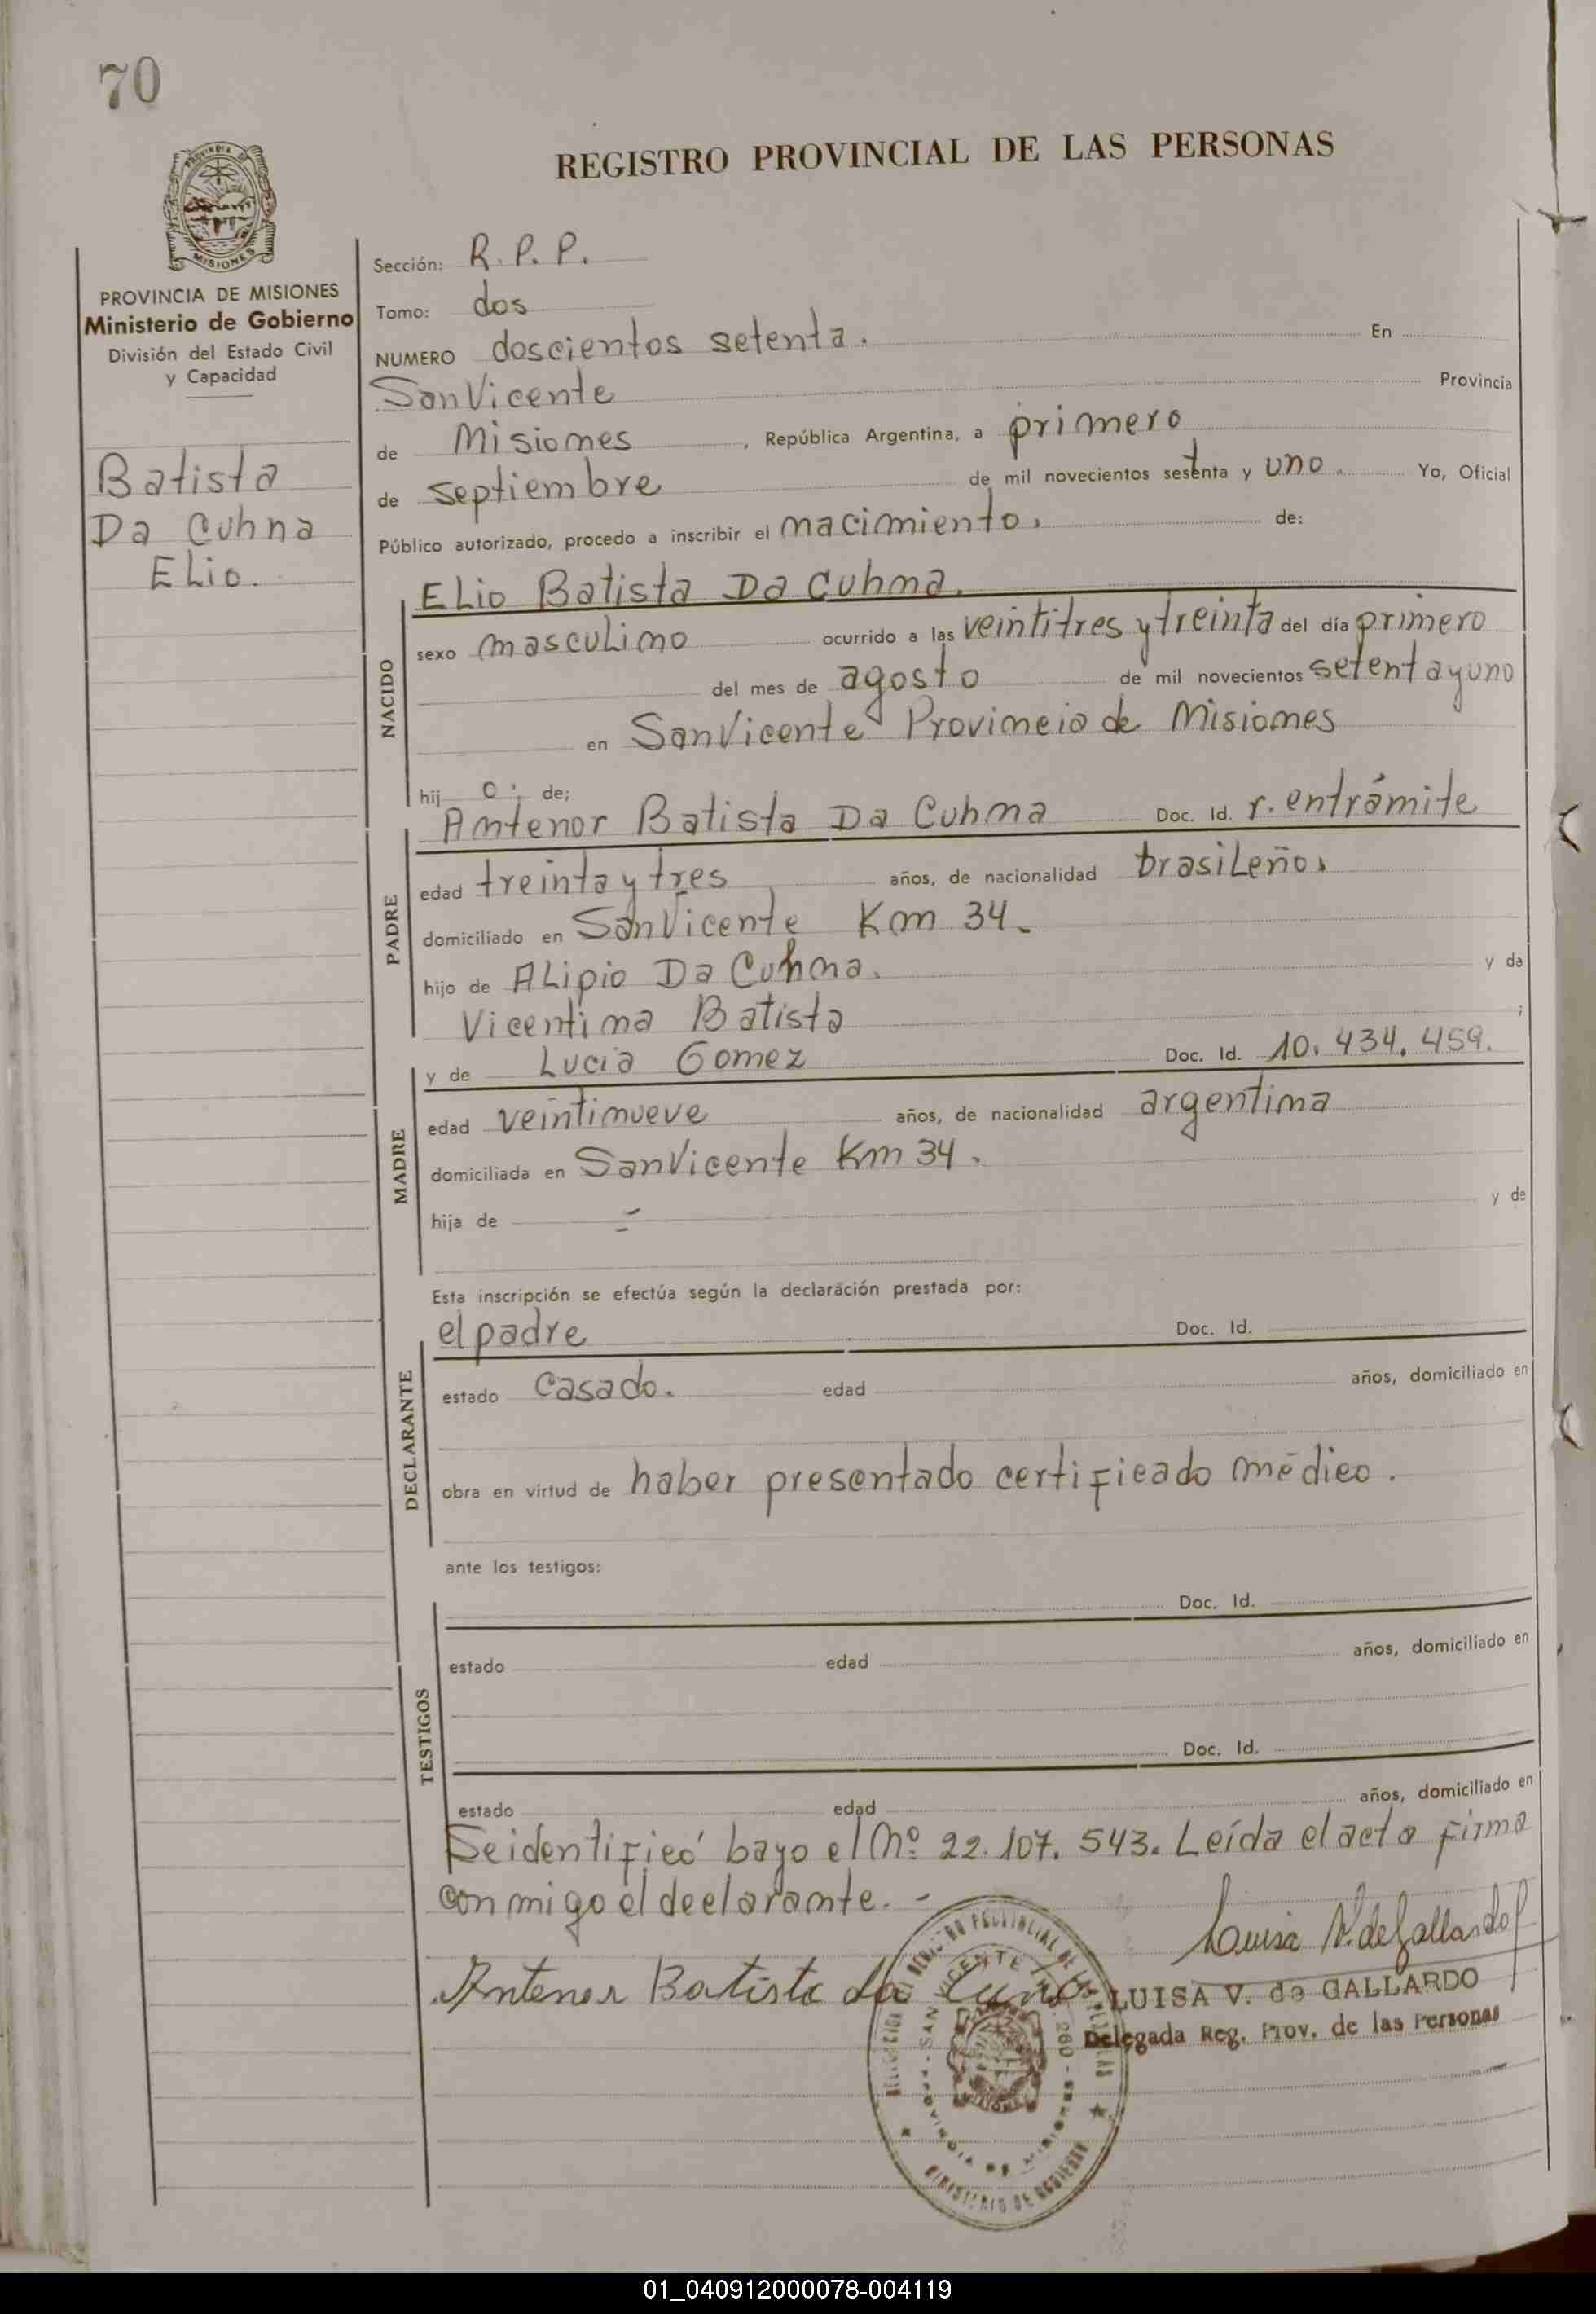 70
REGISTRO PROVINCIAL DE LAS PERSONAS
PROVINCIA DE
MISIONES
PROVINCIA DE MISIONES
Ministerio de Gobierno
División del Estado Civil
y Capacidad
Batista
Da Cuhna
Elio.
Sección: R. P. P.
Tomo: dos
NUMERO doscientos setenta. En
San Vicente Provincia
de Misiones, República Argentina, a primero
de septiembre de mil novecientos setenta y uno. Yo, Oficial
Público autorizado, procedo a inscribir el nacimiento. de:
NACIDO
Elio Batista Da Cuhna.
sexo masculino ocurrido a las veintitres y treinta del día primero
del mes de agosto de mil novecientos setenta y uno
en San Vicente Provincia de Misiones
hij o. de;
PADRE
Antenor Batista Da Cuhna Doc. Id. r. entrámite
edad treinta y tres años, de nacionalidad brasileño.
domiciliado en San Vicente Km 34.
hijo de Alipio Da Cuhna. y da
Vicentina Batista ;
MADRE
y de Lucia Gomez Doc. Id. 10.434.459.
edad veintinueve años, de nacionalidad argentina
domiciliada en San Vicente Km 34.
hija de - y de
Esta inscripción se efectúa según la declaración prestada por:
DECLARANTE
el padre Doc. Id.
estado Casado. edad años, domiciliado en
obra en virtud de haber presentado certificado médico.
ante los testigos:
TESTIGOS
Doc. Id.
estado edad años, domiciliado en
Doc. Id.
estado edad años, domiciliado en
Se identificó bayo el Nº 22.107.543. Leída el acta firma
conmigo el declarante. -
Luisa V. de Gallardo
Antenor Batista da Cunha
LUISA V. de GALLARDO
Delegada Reg. Prov. de las Personas
REGISTRO PROVINCIAL DE LAS
SAN VICENTE
260
PROVINCIA DE MISIONES
MINISTERIO DE GOBIERNO
01_040912000078-004119